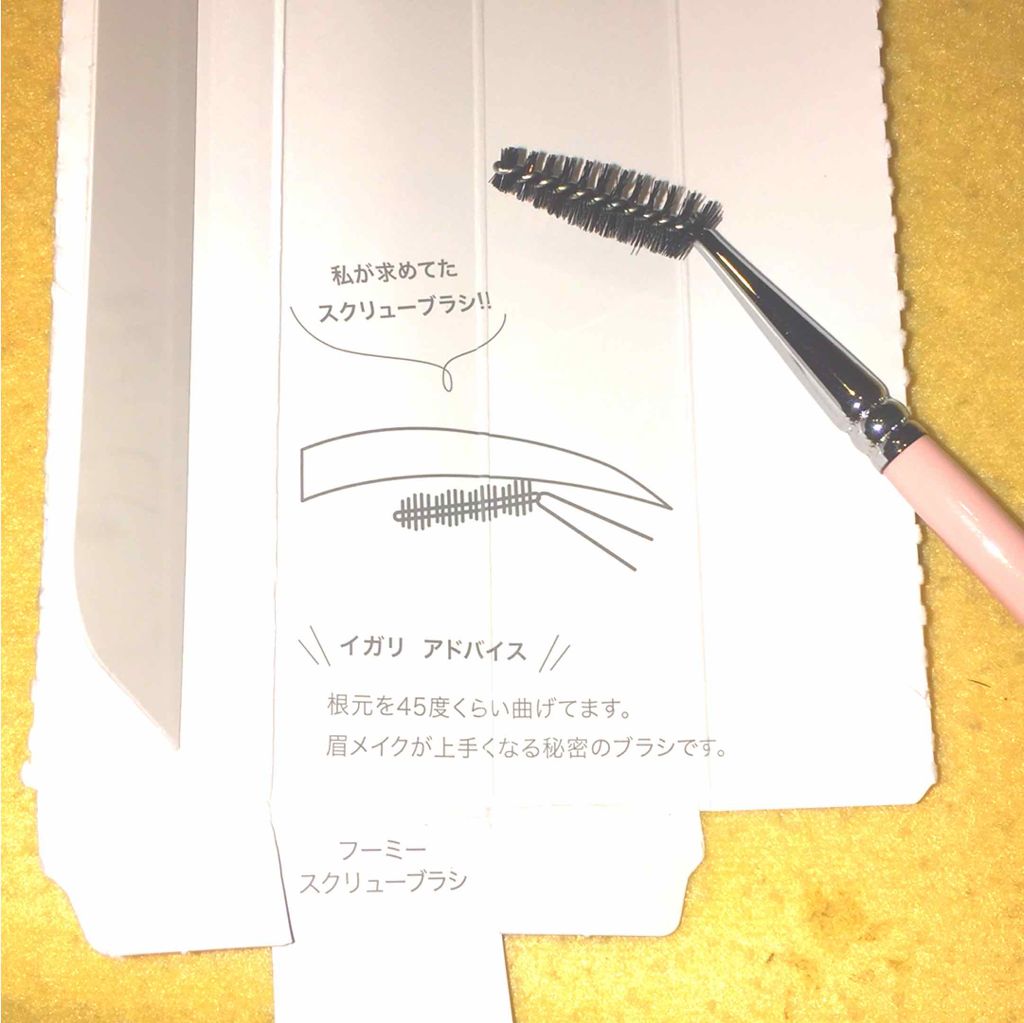 私が求めてた
スクリューブラシ!!
イガリ アドバイス
根元を45度くらい曲げてます。
眉メイクが上手くなる秘密のブラシです。
フーミー
スクリューブラシ